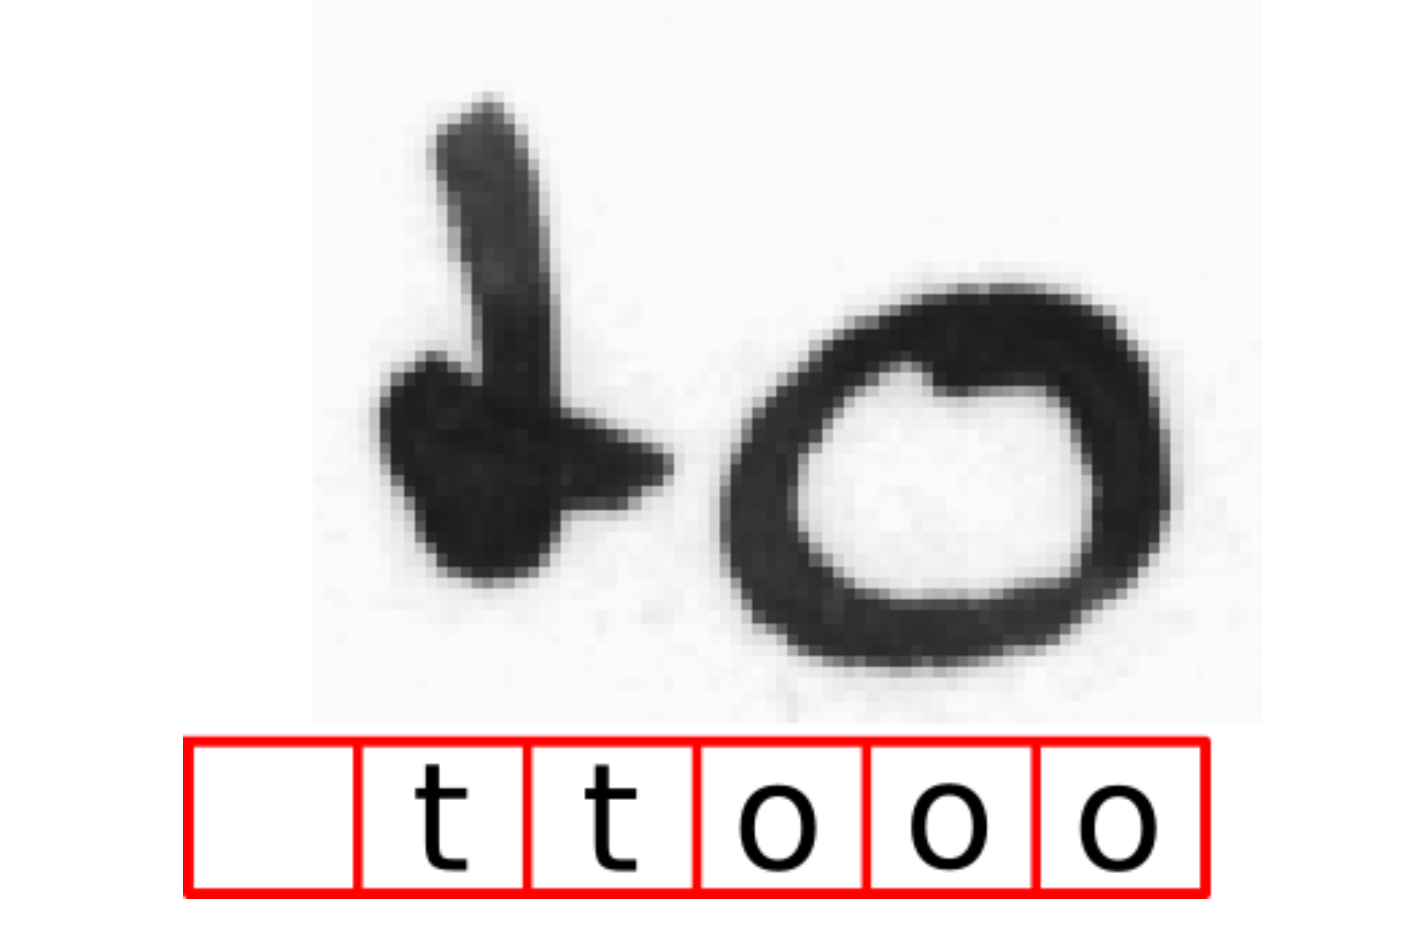 to
t t o o o